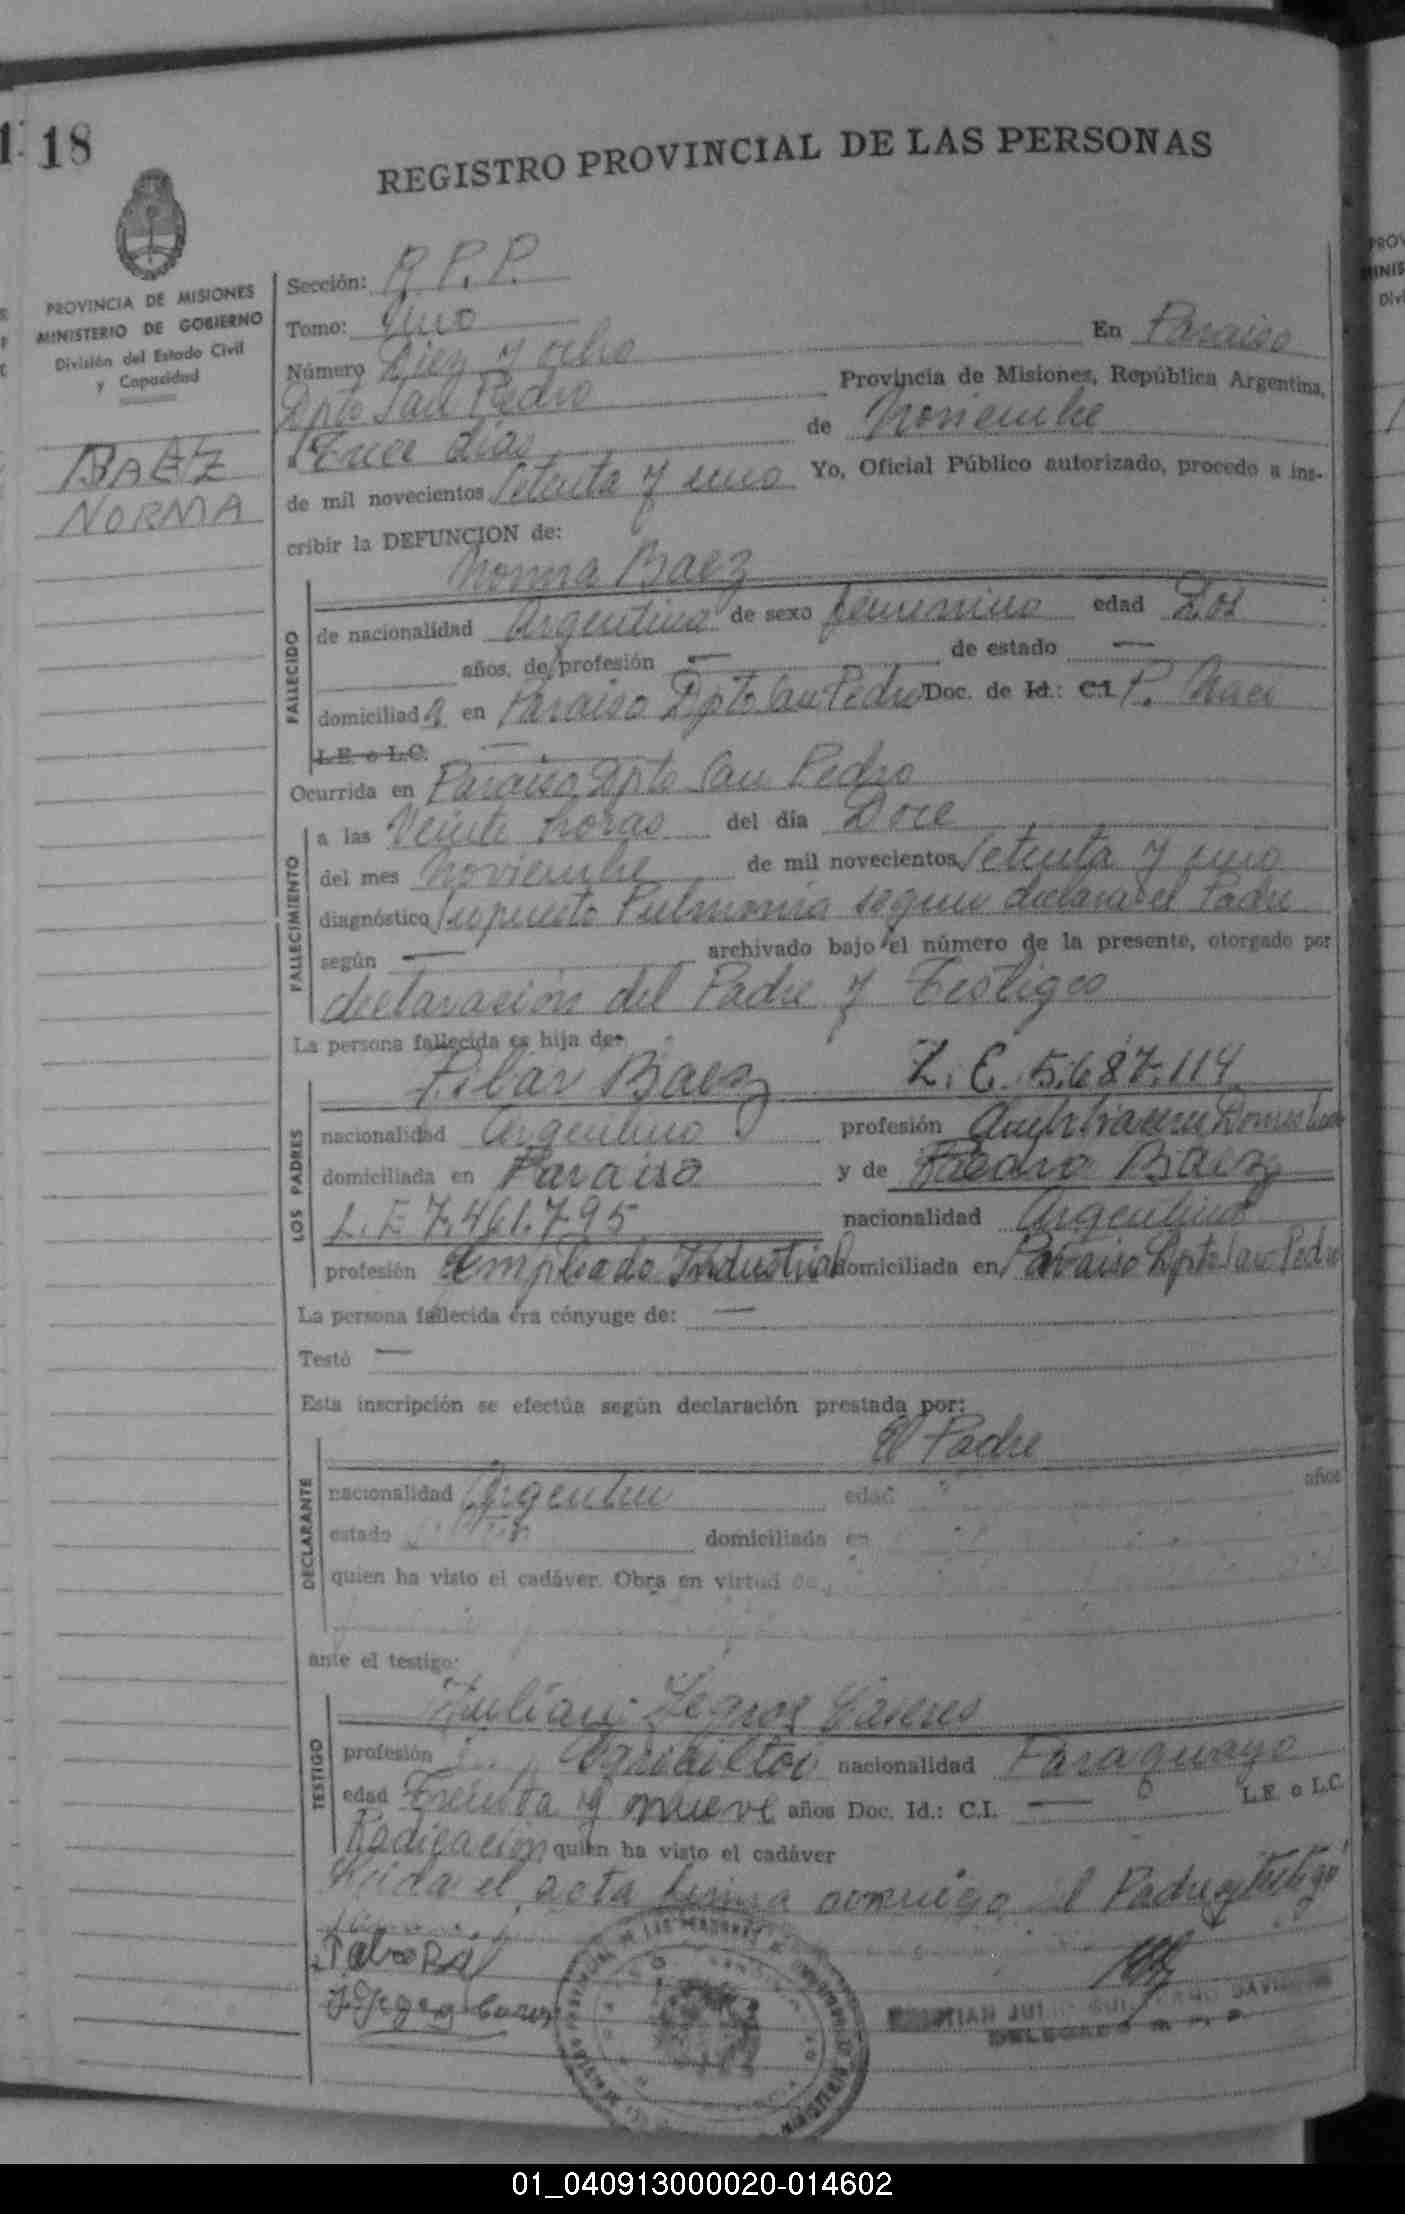 18
REGISTRO PROVINCIAL DE LAS PERSONAS
PROVINCIA DE MISIONES
MINISTERIO DE GOBIERNO
División del Estado Civil
y Capacidad
BAEZ
NORMA
Sección: R.P.P.
Tomo: Uno
Número Diez y ocho En Paraiso
Dpto San Pedro Provincia de Misiones, República Argentina,
a Trece dias de Noviembre
de mil novecientos Setenta y uno Yo, Oficial Público autorizado, procedo a ins-
cribir la DEFUNCION de:
Norma Baez
FALLECIDO
de nacionalidad Argentina de sexo femenino edad Dos
años, de profesión — de estado —
domiciliada en Paraiso Dpto San Pedro Doc. de Id.: C.I. P. Naci
L.E. o L.C. —
Ocurrida en Paraiso Dpto San Pedro
FALLECIMIENTO
a las Veinte horas del día Doce
del mes Noviembre de mil novecientos Setenta y uno
diagnóstico Supuesto Pulmonia segun declara el Padre
según — archivado bajo el número de la presente, otorgado por
declarasión del Padre y Testigos
La persona fallecida es hija de:
Pilar Baez L.C. 5.687.114
LOS PADRES
nacionalidad Argentino profesión
domiciliada en Paraiso y de Baez
L.E 7.461.795 nacionalidad Argentino
profesión Empleado Industrial domiciliada en Paraiso Dpto San Pedro
La persona fallecida era cónyuge de: —
Testó —
Esta inscripción se efectúa según declaración prestada por:
El Padre
DECLARANTE
nacionalidad Argentin edad años
estado domiciliada en
quien ha visto el cadáver. Obra en virtud de
ante el testigo:
Julian
TESTIGO
profesión nacionalidad Paraguayo
edad Treinta y nueve años Doc. Id.: C.I. — L.E. o L.C.
Radicación quien ha visto el cadáver
el acta firma conmigo el Padre y testigo
01_040913000020-014602